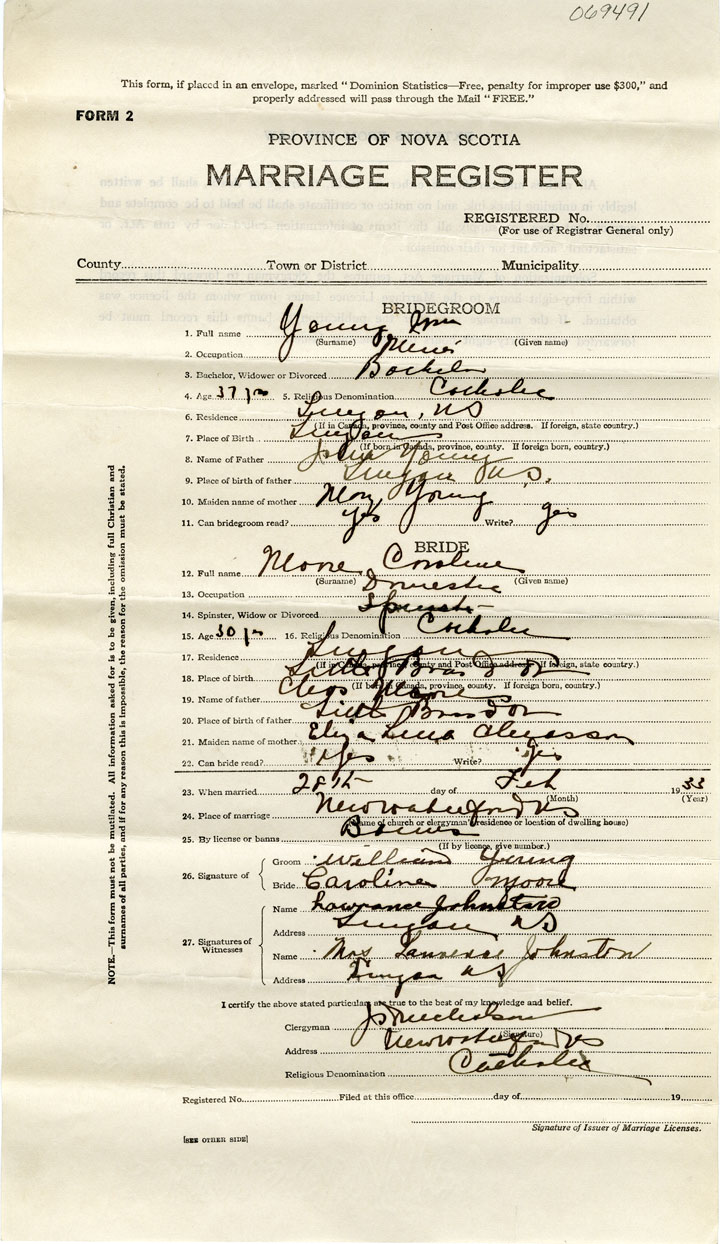 069491
This form, if placed in an envelope, marked "Dominion Statistics—Free, penalty for improper use $300," and
properly addressed will pass through the Mail "FREE."
FORM 2
PROVINCE OF NOVA SCOTIA
MARRIAGE REGISTER
REGISTERED No.
(For use of Registrar General only)
County Town or District Municipality
BRIDEGROOM
1. Full name Young Wm
(Surname) (Given name)
2. Occupation Miner
3. Bachelor, Widower or Divorced Bachelor
4. Age 37 yrs 5. Religious Denomination Catholic
6. Residence Lingan, NS
(If in Canada, province, county and Post Office address. If foreign, state country.)
7. Place of Birth Lingan
(If born in Canada, province, county. If foreign born, country.)
8. Name of Father John Young
9. Place of birth of father Lingan N.S.
10. Maiden name of mother Mary Young
11. Can bridegroom read? yes Write? yes
BRIDE
12. Full name Moore Caroline
(Surname) (Given name)
13. Occupation Domestic
14. Spinster, Widow or Divorced Spinster
15. Age 30 yrs 16. Religious Denomination Catholic
17. Residence Lingan
(If in Canada, province, county and Post Office address. If foreign, state country.)
18. Place of birth Little Bras D'Or
(If born in Canada, province, county. If foreign born, country.)
19. Name of father Moore
20. Place of birth of father Little Bras D'Or
21. Maiden name of mother Eliza
22. Can bride read? Yes Write? Yes
23. When married 28th day of Feb 1933
(Month) (Year)
24. Place of marriage New Waterford NS
(Name of church or clergyman's residence or location of dwelling house)
25. By license or banns Banns
(If by licence, give number.)
26. Signature of Groom William Young
Bride Caroline Moore
27. Signatures of Witnesses Name Lawrance Johnston
Address Lingan NS
Name Mrs Lawrence Johnston
Address Lingan NS
I certify the above stated particulars are true to the best of my knowledge and belief.
Clergyman
(Signature)
Address New Waterford NS
Religious Denomination Catholic
Registered No. Filed at this office day of 19
Signature of Issuer of Marriage Licenses.
[SEE OTHER SIDE]
NOTE.—This form must not be mutilated. All information asked for is to be given, including full Christian and
surnames of all parties, and if for any reason this is impossible, the reason for the omission must be stated.